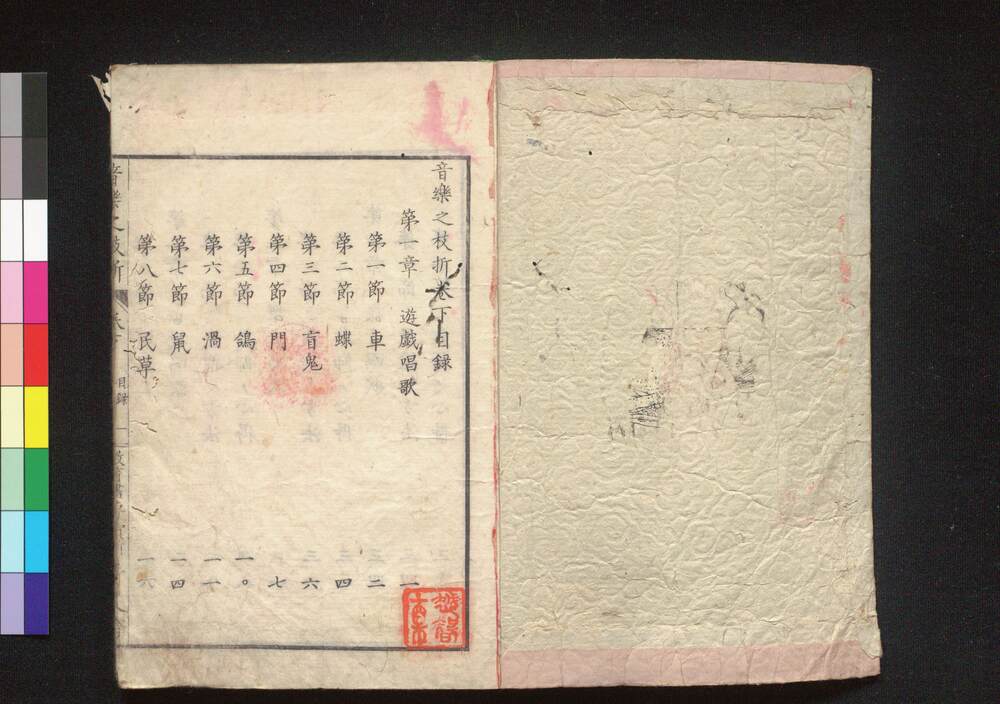 音樂之枝折卷下目録
第一章 遊戯唱歌 一
第一節 車 二
第二節 蝶 四
第三節 盲鬼 六
第四節 門 七
第五節 鴿 一〇
第六節 渦 一一
第七節 鼠 一四
第八節 民草 一六
音樂之枝折
目録